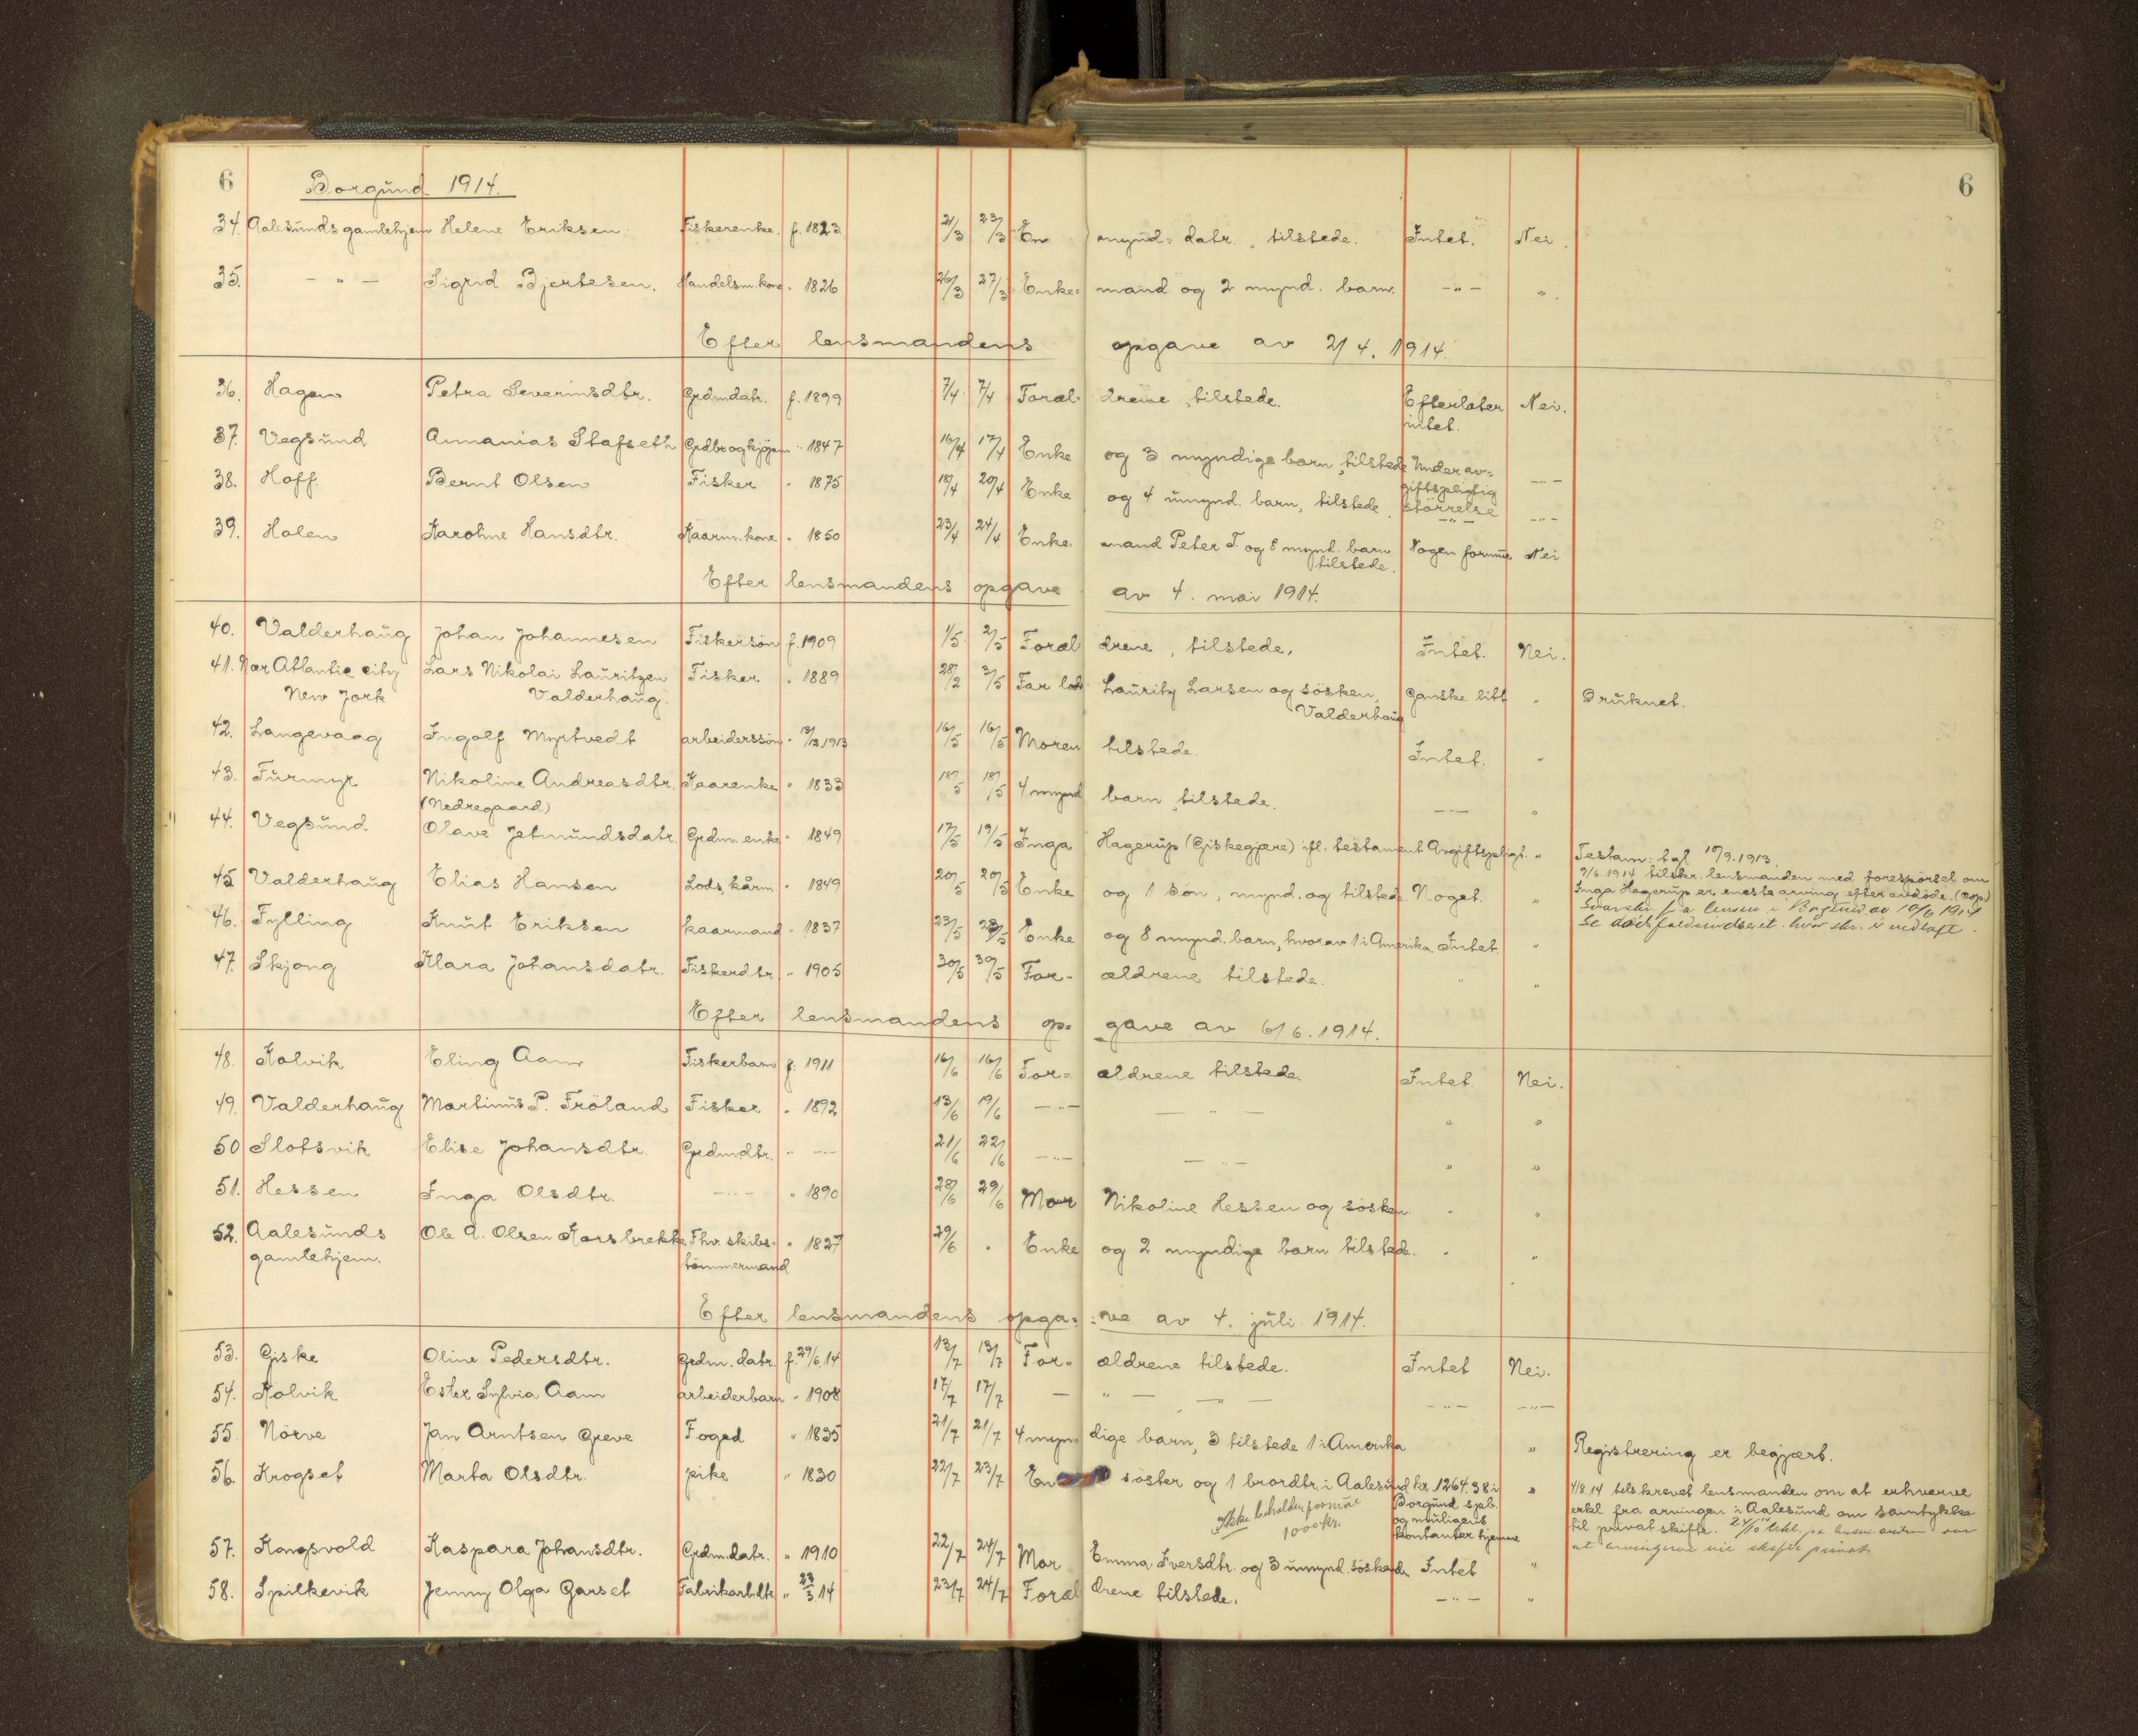 6 Borgund 1914. 6
34. Aalesunds gamlehjem Helene Eriksen. Fiskerenke. f. 1823 21/3 23/3 En mynd. datr., tilstede. Intet. Nei.
35. - " - Sigrid Bjertesen. Handelsm. kone " 1826 26/3 27/3 Enke= mand og 2 mynd. barn. - " - ".
Efter lensmandens opgave av 2/4. 1914.
36. Hagen Petra Severinsdtr. Grdmdatr. f. 1899 7/4 7/4 Foræl- drene tilstede. Efterlater Nei.
intet.
37. Vegsund Annanias Stafseth Grdbr og kjøpm " 1847 16/4 17/4 Enke og 3 myndige barn, tilstede Under av= - " -
giftspligtig
38. Hoff. Bernt Olsen Fisker " 1875 18/4 20/4 Enke og 4 umynd. barn, tilstede. størrelse - " -
- " -
39. Holen Karoline Hansdtr. Kaarm. kone " 1850 23/4 24/4 Enke. mand Peter T. og 8 mynd. barn Nogen formue Nei
tilstede.
Efter lensmandens opgave av 4. mai 1914.
40. Valderhaug Johan Johannesen Fiskersøn f. 1909 1/5 2/5 Foræl drene, tilstede. Intet. Nei.
41. Nær Atlantic city Lars Nikolai Lauritzen Fisker " 1889 28/2 3/5 Far lods Lauritz Larsen og søsken, Ganske litt " Druknet.
New York Valderhaug. Valderhaug
42. Langevaag Ingolf Myrtvedt arbeiderssøn " 13/12 1913 16/5 16/5 Moren tilstede. Intet. "
43. Furmyr Nikoline Andreasdtr. Kaarenke " 1833 18/5 18/5 4 mynd barn tilstede. - " - "
(Nedregaard)
44. Vegsund. Olave Jetmundsdatr. Grdm. enke " 1849 17/5 19/5 Inga Hagerup (Giskegjære) ifl. testament Avgiftspligt. " Testam. tgl 10/9. 1913.
9/6 1914 tilskr. lensmanden med forespørsel om
45 Valderhaug Elias Hansen Lods, kårm. " 1849 20/5 20/5 Enke og 1 søn, mynd. og tilstede Noget. " Inga Hagerup er eneste arving efter avdøde. (kop.)
46. Fylling Knut Eriksen kaarmand " 1837 23/5 23/5 Enke og 8 mynd. barn, hvorav 1 i Amerika Intet. " Svarskr. fra lensm. i Borgund av 10/6 1914
Se dødsfaldsindberet. hvor skr. er vedlagt.
47. Skjong Klara Johansdatr. Fiskerdtr. " 1905 30/5 30/5 For- ældrene tilstede. " "
Efter lensmandens op= gave av 6/6. 1914.
48. Kolvik Eling Aam Fiskerbarn f. 1911 16/6 16/6 For= ældrene tilstede. Intet Nei.
49. Valderhaug Martinus P. Frøland Fisker " 1892 13/6 19/6 - " - - " - " "
50 Slotsvik Elise Johansdtr. Grdmdtr. " - " - 21/6 22/6 - " - - " - " "
51. Hessen Inga Olsdtr. - " - " 1890 28/6 29/6 Mor Nikoline Hessen og søsken. " "
52. Aalesunds Ole A. Olsen Korsbrekke Fhv. skibs- " 1827 29/6 " Enke og 2 myndige barn tilstede. " "
gamlehjem. tømmermand
Efter lensmandens opga= =ve av 4. juli 1914.
53. Giske Oline Pedersdtr. Grdm. datr. f. 29/6.14 13/7 13/7 For= ældrene tilstede. Intet Nei.
54. Kolvik Ester Sylvia Aam arbeiderbarn " 1908 17/7 17/7 - " - - " - - " - - " -
55. Nørve Jan Arntsen Greve Foged " 1835 21/7 21/7 4 myn= dige barn, 3 tilstede 1 i Amerika " Registrering er begjært.
56. Krogset Marta Olsdtr. pike " 1830 22/7 23/7 En søster og 1 brordtr. i Aalesund kr. 1264.38 i " 4/8.14 tilskrevet lensmanden om at erhverve
Ikke beholden formue Borgund spb. erkl fra arvingen i Aalesund om samtykke
1000 kr. og muligens til privat skifte. 24/10
kontanter hjemme at arvingerne vil skifte privat
57. Kongsvold Kaspara Johansdtr. Grdm. datr. " 1910 22/7 24/7 Mor Emma Iversdtr. og 3 umynd. søskende Intet "
58. Spilkevik Jenny Olga Garset Fabrikarb.dtr. " 23/3.14 23/7 24/7 Foræl drene tilstede. - " - "